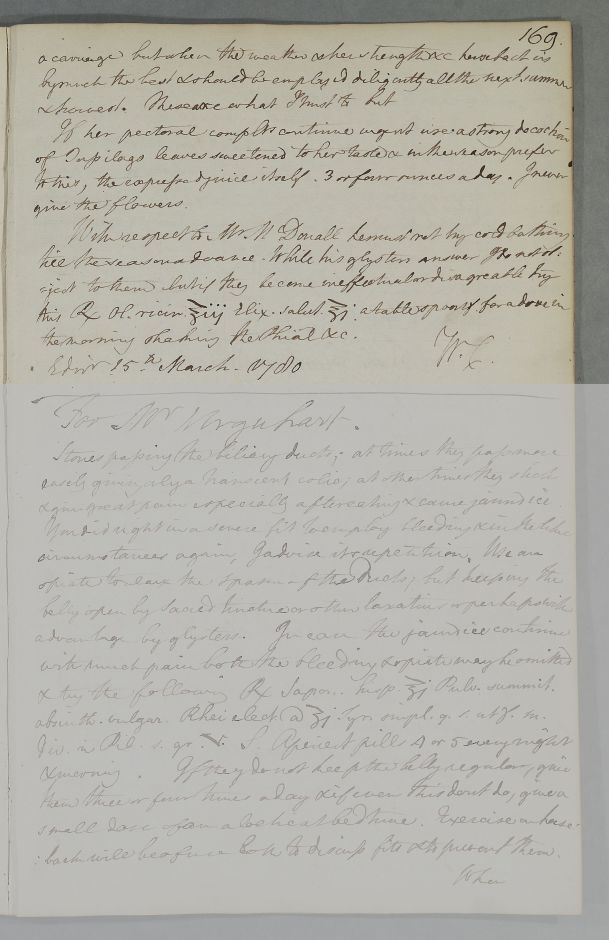 169.
a carriage but when the weather & her strength &c horseback is
by much the best & should be employ'd diligently all the next summer
& harvest. These are what I trust to but
If her pectoral complts continue urgent use a strong decoction
of Tussilago leaves sweetened to her taste & in the season prefer
to this, the express'd juice itself. 3 or four ounces a day. I never
give the flowers.
With respect to Mr. Mc Donall he must not try cold bathing
till the season advance. While his glysters answer I do not ob-
-ject to them but if they become ineffectual or disagreable try
this Rx Ol. ricin. ℥iij Elix. salut. ℥j a table spoonf. for a dose in
the morning shaking the Phial &c.
W. C.
Edinr 15th March. 1780
For Mr Urquhart.
Stones passing the biliary ducts; at times they pass more
easily giving only a transcient colic; at other times they stick
& give great pain especially after eating & cause jaundice.
You did right in a severe fit to employ bleeding & in the like
circumstances again, I advise its repetition. Use an
opiate to relax the spasm of the Ducts; but keeping the
belly open by Sacred tincture or other laxatives or perhaps with
advantage by glysters. In case the jaundice continue
with much pain both the bleeding & opiate may be omitted
& try the following Rx Sapon. hisp. ℥j Pulv. summit.
absinth. vulgar. Rhei elect. a ʒj Syr. simpl. q. s. ut f. m.
div. in Pil. s. gr. V. S. Aperient pills 4 or 5 every night
& morning. If they do not keep the belly regular, give
them three or four times a day & if even this dont do, give a
small dose of an aloetic at bedtime. Exercise on horse-
:back will be of use both to discuss fits & to prevent them.
When